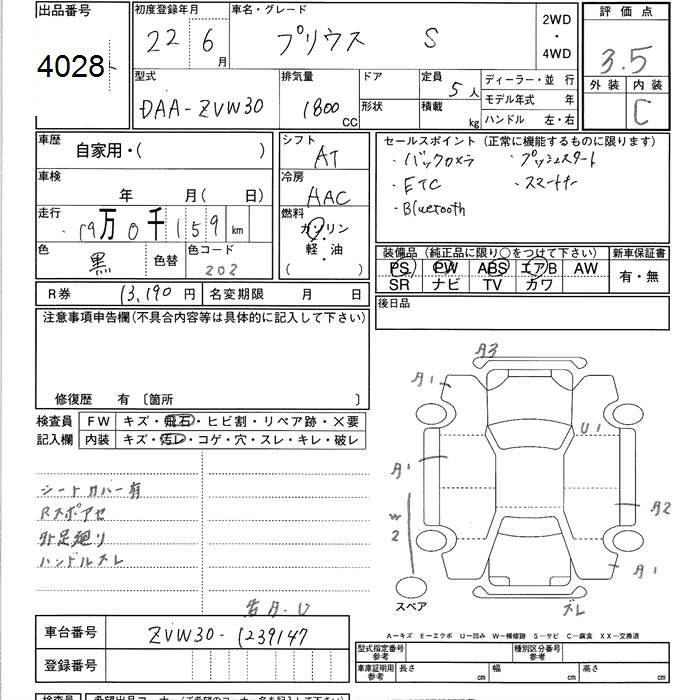 出品番号
4028
初度登録年月
22 6月
車名・グレード
プリウス S
2WD
・
4WD
評価点
3.5
外装 内装
C
型式
DAA-ZVW30
排気量
1800 CC
ドア
形状
定員 5人
積載 kg
ディーラー・並 行
モデル年式 年
ハンドル 左・右
車歴
自家用・( )
車検
年 月( 日)
走行
19万0千159 km
色
黒
色替
色コード
202
シフト
AT
冷房
HAC
燃料
ガソリン
・
軽・油
( )
セールスポイント (正常に機能するものに限ります)
・バックカメラ ・プッシュスタート
・ETC ・スマートキー
・Bluetooth
装備品 (純正品に限り○をつけて下さい)
PS PW ABS エアB AW
SR ナビ TV カワ
新車保証書
有・無
R券 13,190円
名変期限 月 日
後日品
注意事項申告欄(不具合内容等は具体的に記入して下さい)
修復歴 有 〔箇所 〕
検査員
記入欄
FW キズ・飛石・ヒビ割・リペア跡・×要
内装 キズ・汚レ・コゲ・穴・スレ・キレ・破レ
シートカバー有
Rスポアセ
外足廻り
ハンドルスレ
A3
A1
U1
A1
A2
W2
A1
スレ
スペア
A-キズ E-エクボ U-凹み W-補修跡 S-サビ C-腐食 XX-交換済
車台番号
ZVW30-1239147
登録番号
型式指定番号
参考
種別区分番号
参考
車庫証明用
参考
長さ cm
幅 cm
高さ cm
検査員
希望出品コーナー(ご希望のコーナー名を記入下さい)